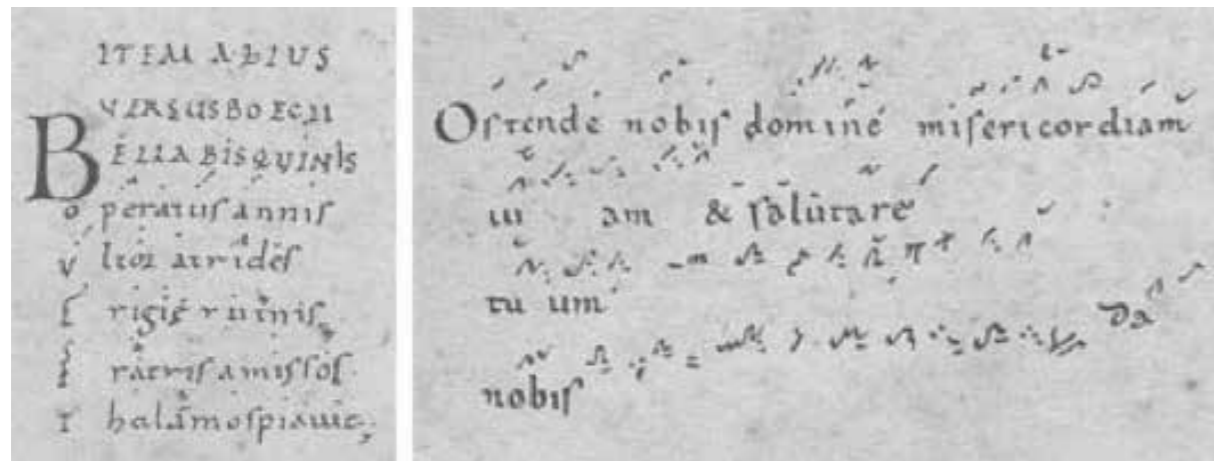 ITEM ALIUS
VERSUS BOECII
BELLA BIS QUINIS
operatus annis
ultor atrides
frigie ruinis
fratris amissos
Thalamos piavit
Ostende nobis domine misericordiam
tu am & salutare
tu um Da
nobis